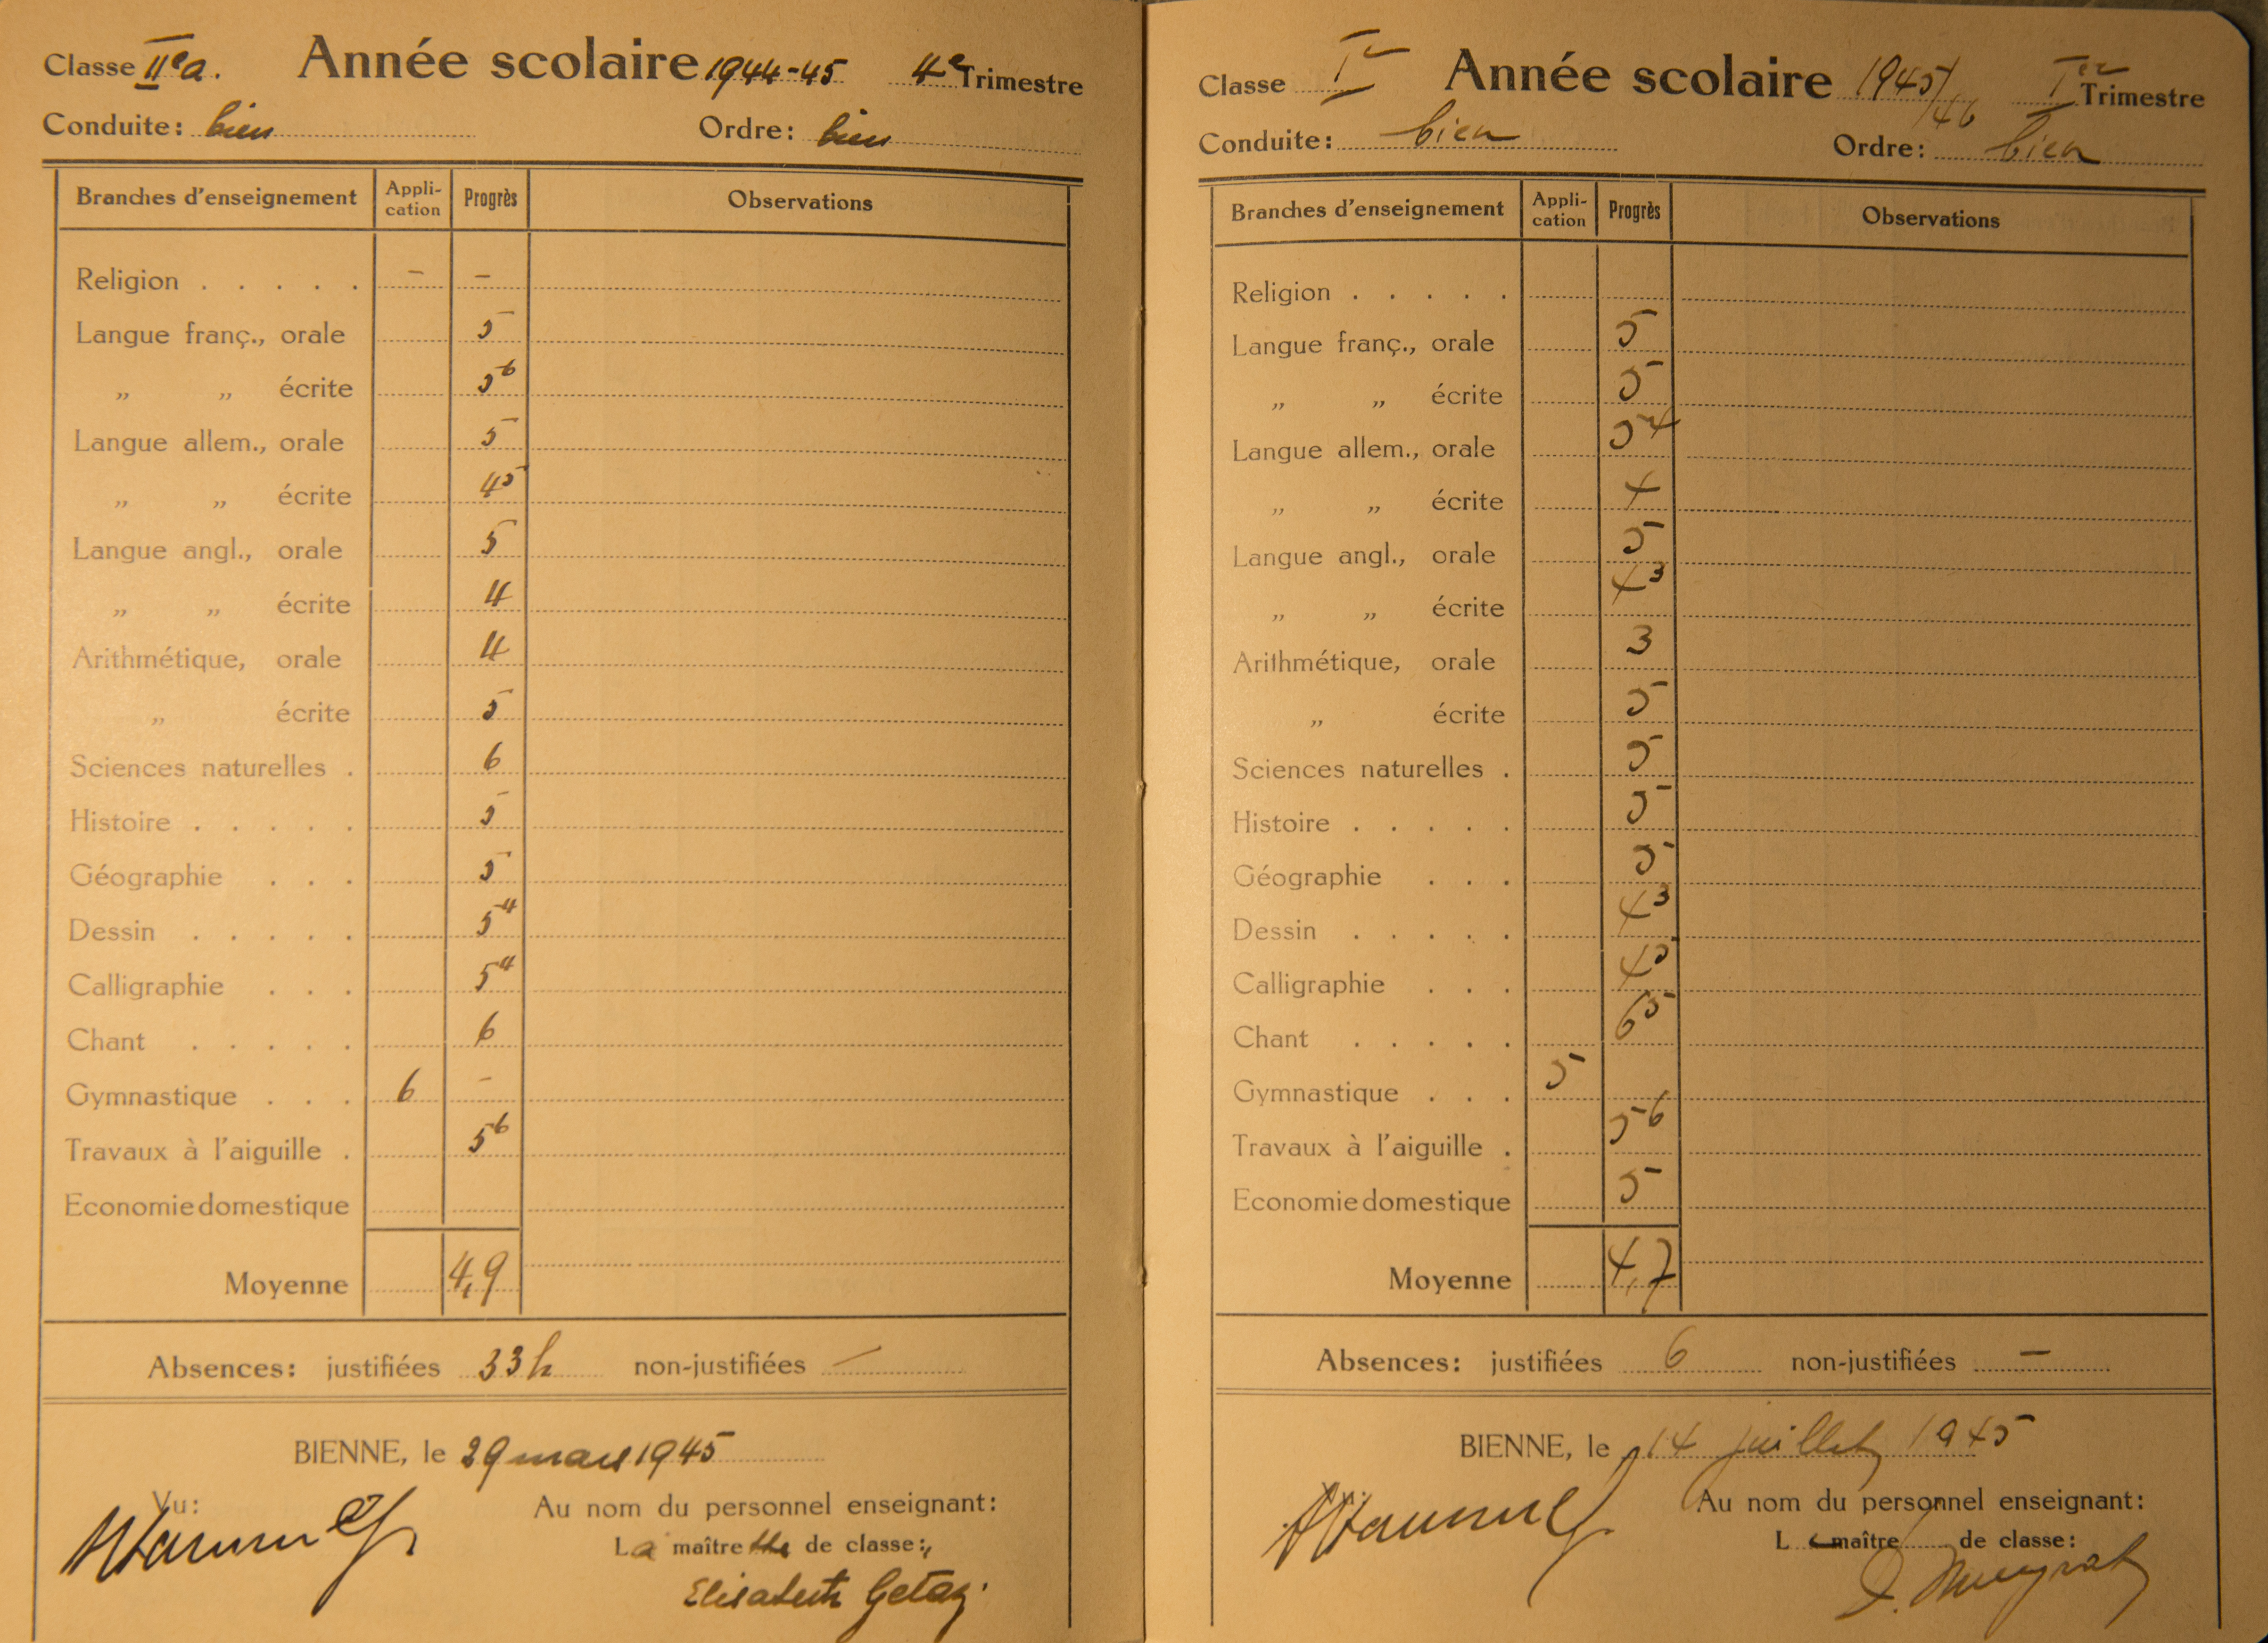 Classe IIe a. Année scolaire 1944-45 4e Trimestre
Conduite: bien Ordre: bien
Branches d'enseignement Appli-cation Progrès Observations
Religion . . . . . – –
Langue franç., orale 5
„ „ écrite 5⁶
Langue allem., orale 5
„ „ écrite 4⁵
Langue angl., orale 5
„ „ écrite 4
Arithmétique, orale 4
„ écrite 5
Sciences naturelles . 6
Histoire . . . . . 5
Géographie . . . 5
Dessin . . . . . 5⁴
Calligraphie . . . 5⁴
Chant . . . . . 6
Gymnastique . . . 6 –
Travaux à l'aiguille . 5⁶
Economie domestique
Moyenne 4,9
Absences: justifiées 33 h non-justifiées —
BIENNE, le 29 mars 1945
Vu: Au nom du personnel enseignant:
La maîtresse de classe:
Elisabeth Getaz.
Classe Ie Année scolaire 1945/46 Ier Trimestre
Conduite: bien Ordre: bien
Branches d'enseignement Appli-cation Progrès Observations
Religion . . . . .
Langue franç., orale 5
„ „ écrite 5
Langue allem., orale 5⁴
„ „ écrite 4
Langue angl., orale 5
„ „ écrite 4³
Arithmétique, orale 3
„ écrite 5
Sciences naturelles . 5
Histoire . . . . . 5
Géographie . . . 5
Dessin . . . . . 4³
Calligraphie . . . 4⁵
Chant . . . . . 6⁵
Gymnastique . . . 5
Travaux à l'aiguille . 5⁶
Economie domestique 5
Moyenne 4,7
Absences: justifiées 6 non-justifiées —
BIENNE, le 14 juillet 1945
Au nom du personnel enseignant:
Le maître de classe: